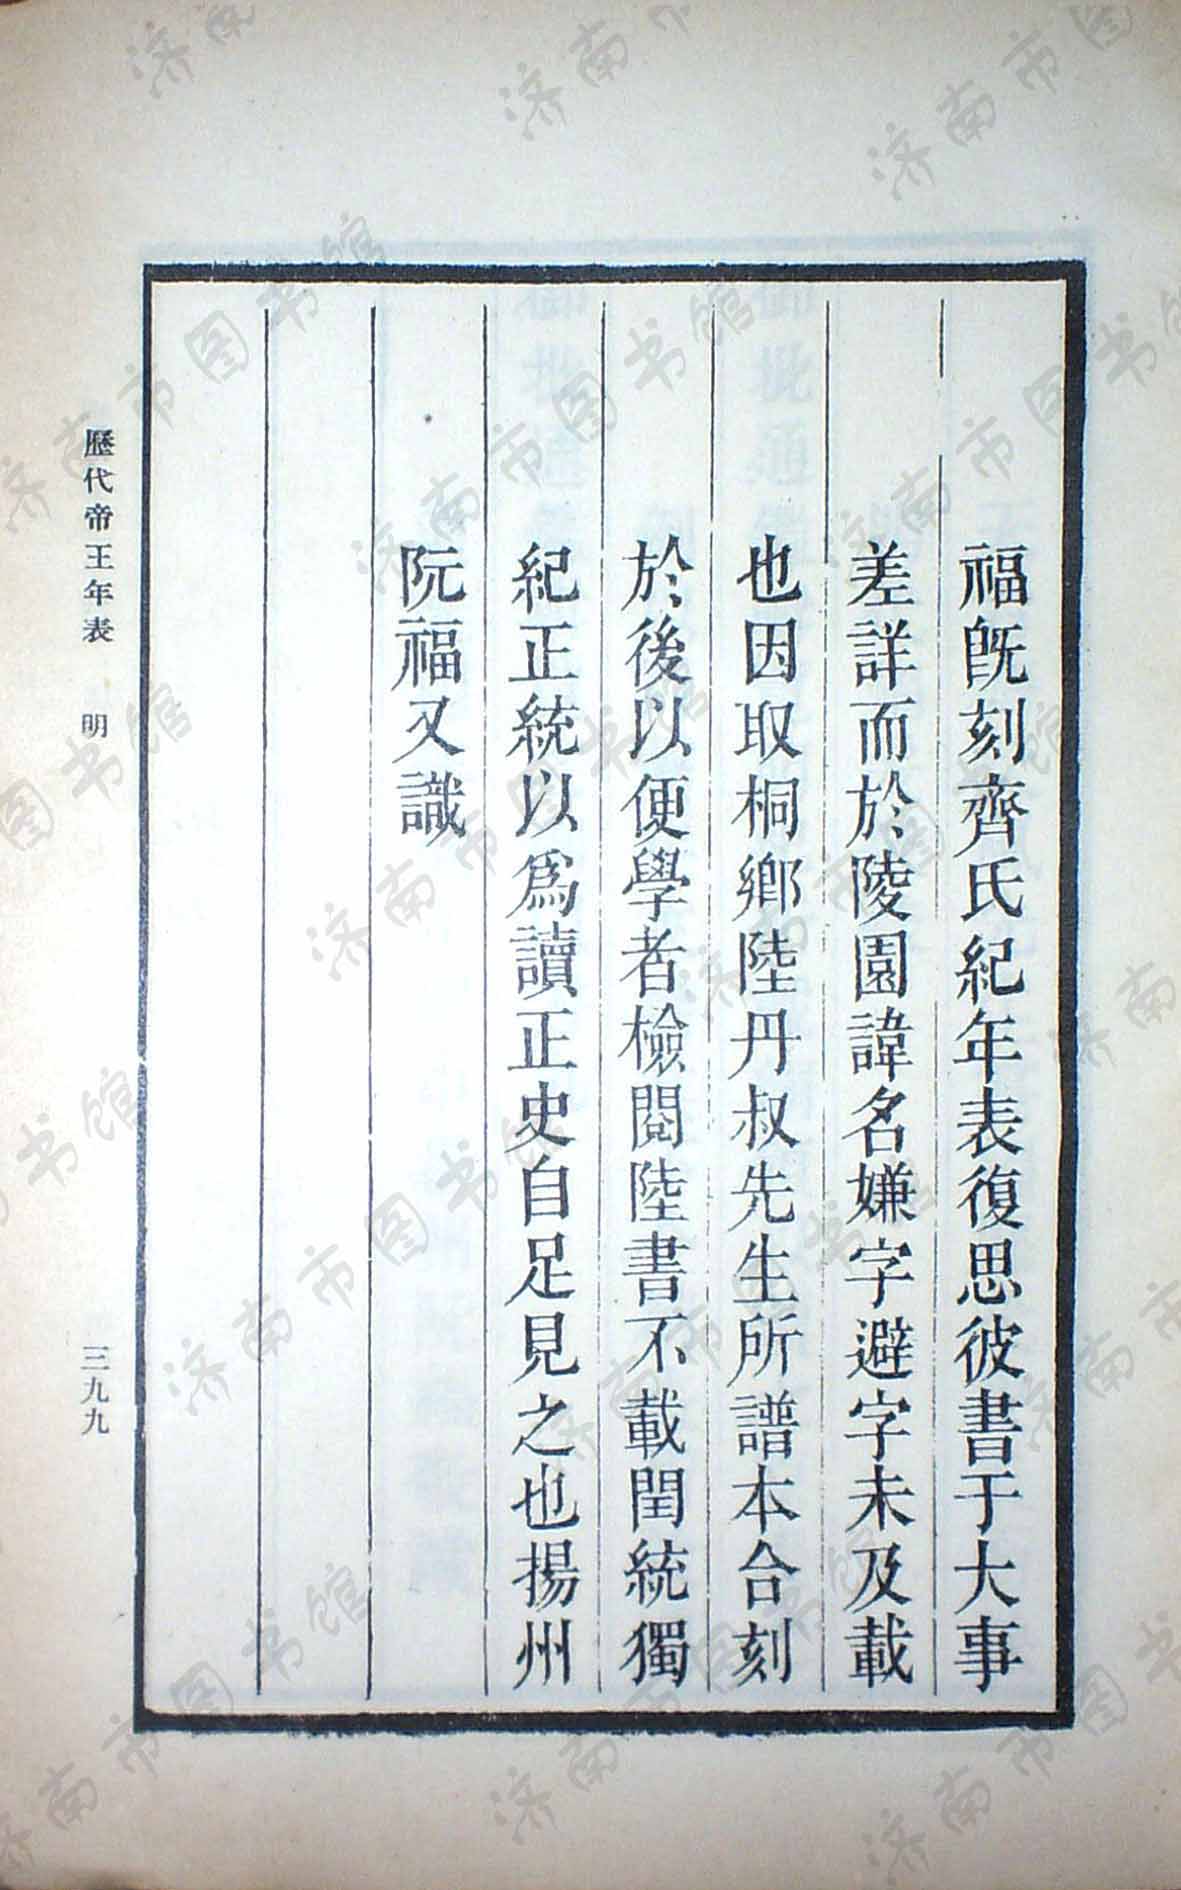 福既刻齊氏紀年表復思彼書于大事
差詳而於陵園諱名嫌字避字未及載
也因取桐鄉陸丹叔先生所譜本合刻
於後以便學者檢閱陸書不載閏統獨
紀正統以爲讀正史自足見之也揚州
阮福又識
歷代帝王年表 明
三九九
济南市图书馆